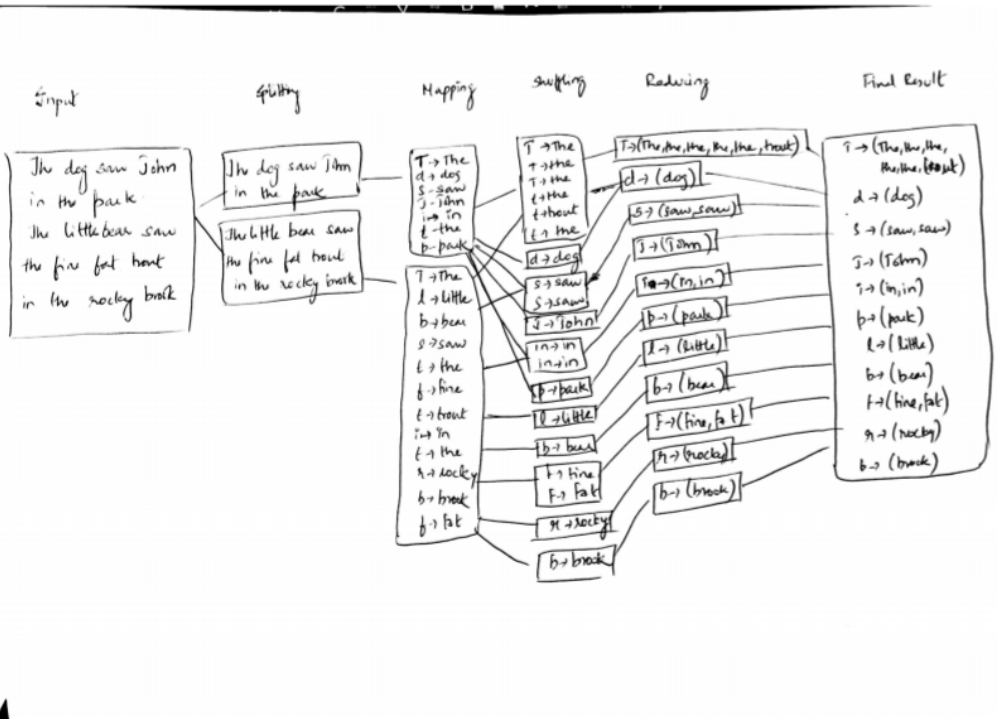 Input
Splitting
Mapping
Shuffling
Reducing
Final Result
The dog saw John
in the park
The little bear saw
the fine fat trout
in the rocky brook
The dog saw John
in the park
The little bear saw
the fine fat trout
in the rocky brook
T → The
d → dog
s → saw
J → John
i → in
t → the
p → park
T → The
l → little
b → bear
s → saw
t → the
f → fine
t → trout
i → in
t → the
r → rocky
b → brook
f → fat
T → The
T → the
T → the
t → the
t → trout
t → the
d → dog
s → saw
s → saw
J → John
in → in
in → in
p → park
l → little
b → bear
f → fine
F → fat
r → rocky
b → brook
T → (The, the, the, the, the, trout)
d → (dog)
s → (saw, saw)
J → (John)
i → (in, in)
p → (park)
l → (little)
b → (bear)
F → (fine, fat)
r → (rocky)
b → (brook)
T → (The, the, the,
the, the, trout)
d → (dog)
s → (saw, saw)
J → (John)
i → (in, in)
p → (park)
l → (little)
b → (bear)
f → (fine, fat)
r → (rocky)
b → (brook)